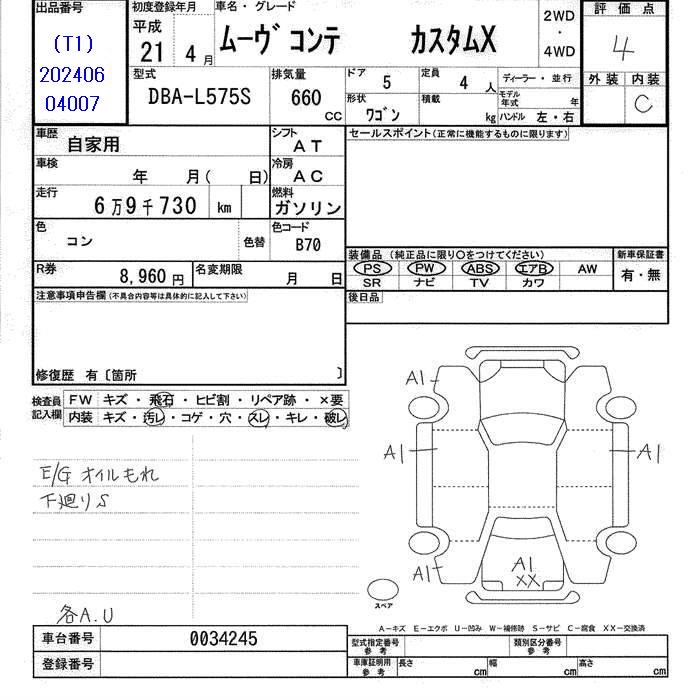 出品番号
(T1)
202406
04007
初度登録年月
平成
21 4月
車名・グレード
ムーヴ コンテ カスタムX
2WD
・
4WD
評価点
4
外装 内装
C
型式
DBA-L575S
排気量
660
CC
ドア
5
定員
4 人
ディーラー・並行
形状
ワゴン
積載
kg
モデル年式 年
ハンドル 左・右
車歴
自家用
シフト
AT
セールスポイント(正常に機能するものに限ります)
車検
年 月( 日)
冷房
AC
走行
6万9千730 km
燃料
ガソリン
色
コン
色替
色コード
B70
装備品(純正品に限り○をつけてください)
PS PW ABS エアB AW
SR ナビ TV カワ
新車保証書
有・無
R券
8,960円
名変期限
月 日
後日品
注意事項申告欄(不具合内容等は具体的に記入して下さい)
修復歴 有〔箇所 〕
検査員
記入欄
FW キズ・飛石・ヒビ割・リペア跡・×要
内装 キズ・汚レ・コゲ・穴・スレ・キレ・破レ
E/G オイルもれ
下廻りS
各A.U
A1
A1
A1
A1
A1
XX
スペア
A−キズ E−エクボ U−凹み W−補修跡 S−サビ C−腐食 XX−交換済
車台番号
0034245
登録番号
型式指定番号
参考
類別区分番号
参考
車庫証明用
参考
長さ cm
幅 cm
高さ cm